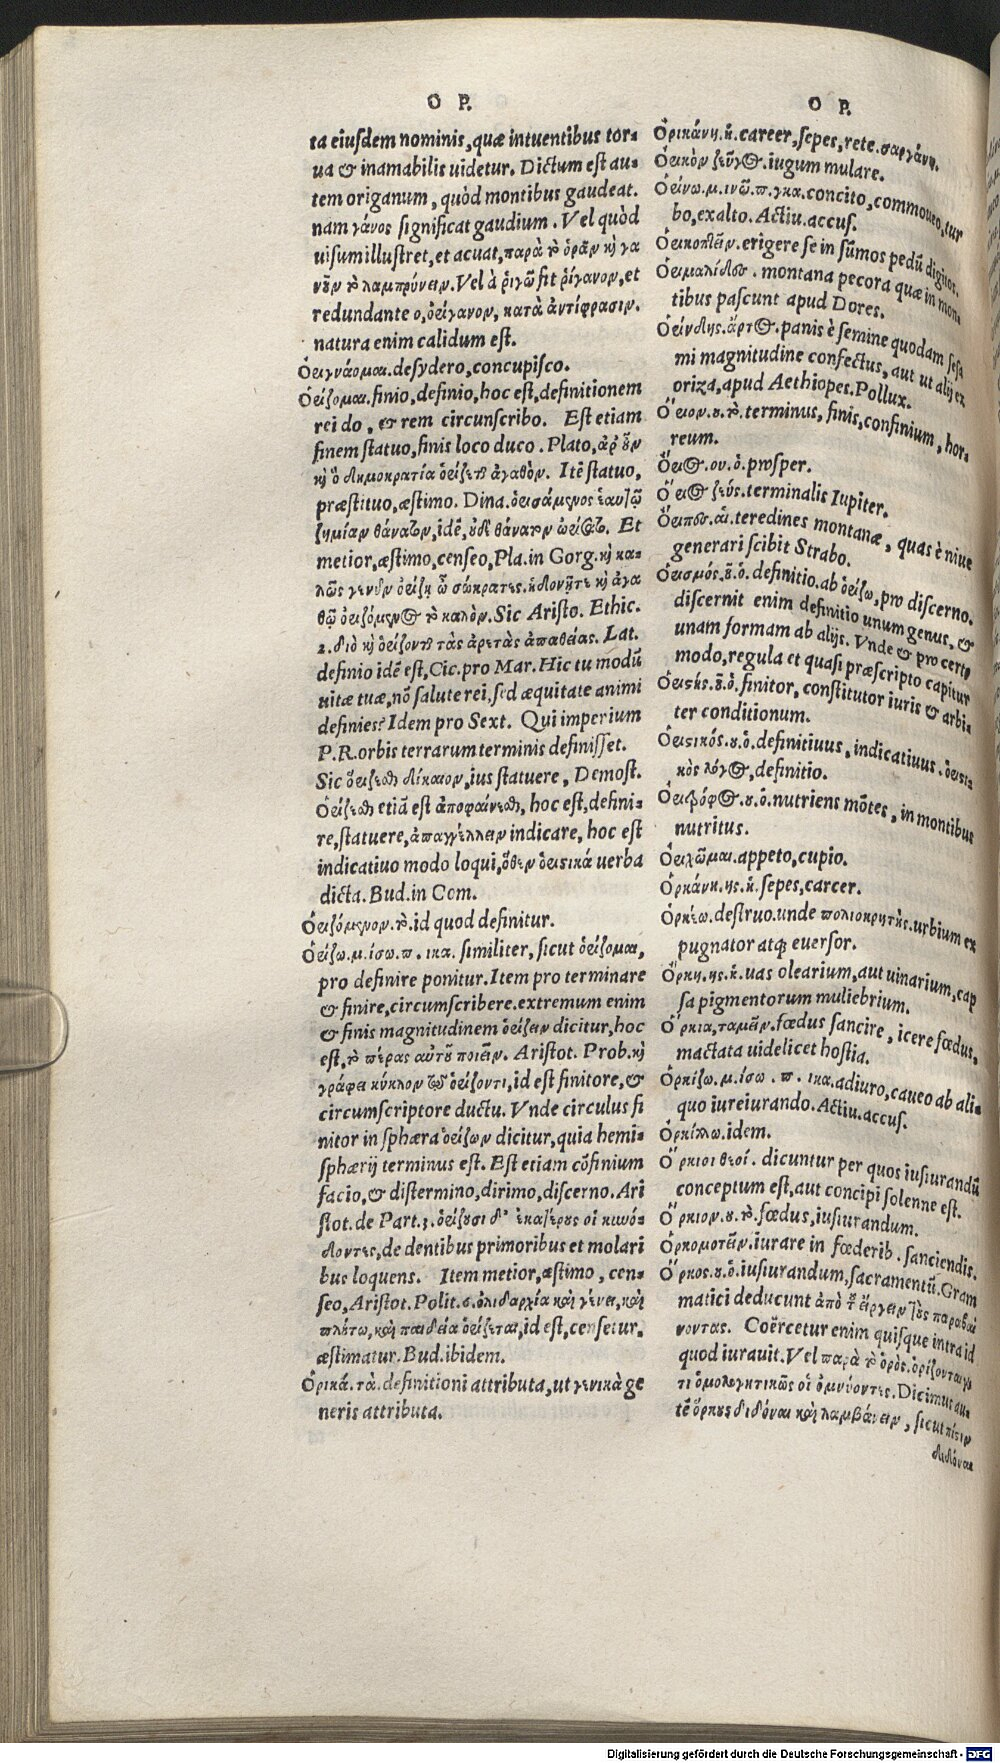 Ο Ρ.
ta eiusdem nominis, quæ intuentibus tor-
ua & inamabilis uidetur. Dictum est au-
tem origanum, quòd montibus gaudeat.
nam γάνος significat gaudium. Vel quòd
uisum illustret, et acuat, παρὰ τὸ ὁρᾶν κὴ γα
νοῦν τὸ λαμπρύνειν. Vel à ῥιγῶ fit ῥίγανον, et
redundante ο, ὀρίγανον, κατὰ ἀντίφρασιν.
natura enim calidum est.
Ὀριγνάομαι. desydero, concupisco.
Ὁρίζομαι. finio, definio, hoc est, definitionem
rei do, & rem circunscribo. Est etiam
finem statuo, finis loco duco. Plato, ἀρ' οὖν
κὴ ὃ δημοκρατία ὁρίζεται ἀγαθὸν. Itē statuo,
præstituo, æstimo. Dina. ὁρισάμενος ἑαυτῷ
ζημίαν θάνατον, idē, οὐδὲ θάνατον ὡρίσατο. Et
metior, æstimo, censeo, Pla. in Gorg. κὴ κα-
λῶς γενῦν ὁρίζῃ ὦ σώκρατες. ἡδονῇτε κὴ ἀγα
θῷ ὁριζόμενος τὸ καλὸν. Sic Aristo. Ethic.
2. διὸ κὴ ὁρίζονται τὰς ἀρετὰς ἀπαθείας. Lat.
definio idē est, Cic. pro Mar. Hic tu modū
uitæ tuæ, nō salute rei, sed æquitate animi
definies? Idem pro Sext. Qui imperium
P.R. orbis terrarum terminis definisset.
Sic ὁρίζεσθαι δίκαιον, ius statuere, Demost.
Ὁρίζεσθαι etiā est ἀποφαίνεσθαι, hoc est, defini-
re, statuere, ἀπαγγέλλειν indicare, hoc est
indicatiuo modo loqui, ὅθεν ὁριστικά uerba
dicta. Bud. in Com.
Ὁριζόμενον. τὸ. id quod definitur.
Ὁρίζω. μ. ίσω. π. ικα. similiter, sicut ὁρίζομαι,
pro definire ponitur. Item pro terminare
& finire, circumscribere. extremum enim
& finis magnitudinem ὁρίζειν dicitur, hoc
est, τὸ πέρας αὐτοῦ ποιεῖν. Aristot. Prob. κὴ
γράφει κύκλον τῷ ὁρίζοντι, id est finitore, &
circumscriptore ductu. Vnde circulus fi
nitor in sphæra ὁρίζων dicitur, quia hemi-
sphærij terminus est. Est etiam cōfinium
facio, & distermino, dirimo, discerno. Ari
stot. de Part. 3. ὁρίζουσι δ' ἑκατέρους οἱ κυνό-
δοντες, de dentibus primoribus et molari
bus loquens. Item metior, æstimo, cen-
seo, Aristot. Polit. 6. ὀλιδαρχία καὶ γένει, καὶ
πλούτῳ, καὶ παιδεία ὁρίζεται, id est, censetur,
æstimatur. Bud. ibidem.
Ὁρικά. τὰ. definitioni attributa, ut γενικὰ ge
neris attributa.
Ο Ρ.
Ὁρικάνη. ἡ. career, sepes, rete. σαργάνη.
Ὀρικὸν ζεῦγος. iugum mulare.
Ὀρίνω. μ. ινῶ. π. γκα. concito, commoueo, tur
bo, exalto. Actiu. accus.
Ὀρικοπλεῖν. erigere se in sūmos pedū digitos.
Ὀριμαλίδες. montana pecora quæ in mon-
tibus pascunt apud Dores.
Ὀρίνδης. ἄρτος. panis è semine quodam sesa
mi magnitudine confectus, aut ut alij ex
oriza, apud Aethiopes. Pollux.
Ὅριον. ου. τὸ. terminus, finis, confinium, hor-
reum.
Ὅρις. ου. ὁ. prosper.
Ὅριος ζεύς. terminalis Iupiter.
Ὄριπες. αἱ. teredines montanæ, quas è niue
generari scibit Strabo.
Ὁρισμός. οῦ. ὁ. definitio. ab ὁρίζω, pro discerno.
discernit enim definitio unum genus, &
unam formam ab alijs. Vnde & pro certo
modo, regula et quasi præscripto capitur
Ὁριστής. οῦ. ὁ. finitor, constitutor iuris & arbi-
ter conditionum.
Ὁριστικός. οῦ. ὁ. definitiuus, indicatiuus. ὁριστι-
κὸς λόγος, definitio.
Ὀρίτροφος. ου. ὁ. nutriens mōtes, in montibus
nutritus.
Ὀριχῶμαι. appeto, cupio.
Ὁρκάνη. ης. ἡ. sepes, carcer.
Ὀρκέω. destruo. unde πολιοκρητὴς. urbium ex
pugnator atq; euersor.
Ὄρκη. ης. ἡ. uas olearium, aut uinarium, cap
sa pigmentorum muliebrium.
Ὅρκια, ταμεῖν. fœdus sancire, icere fœdus,
mactata uidelicet hostia.
Ὁρκίζω. μ. ίσω. π. ικα. adiuro, caueo ab ali-
quo iureiurando. Actiu. accus.
Ὁρκίλλω. idem.
Ὅρκιοι θεοί. dicuntur per quos iusiurandū
conceptum est, aut concipi solenne est.
Ὅρκιον. ου. τὸ. fœdus, iusiurandum.
Ὁρκομοτεῖν. iurare in fœderib. sanciendis.
Ὅρκος. ου. ὁ. iusiurandum, sacramentū. Gram
matici deducunt ἀπὸ τοῦ εἴργειν τοὺς παραβαί
νοντας. Coërcetur enim quisque intra id
quod iurauit. Vel παρὰ τὸ ὁρὸς. ὁρίζονται γὰ
τι ὁμολεγητικῶς οἱ ὀμνύοντες. Dicimus au-
tē ὅρκους διδόναι καὶ λαμβάνειν, sicut πίστιν
διδόναι
Digitalisierung gefördert durch die Deutsche Forschungsgemeinschaft - DFG